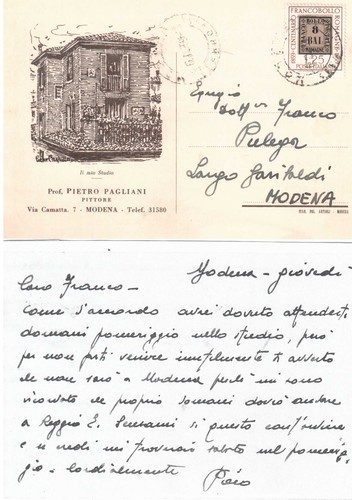 Il mio Studio
Prof. PIETRO PAGLIANI
PITTORE
Via Camatta, 7 - MODENA - Telef. 31580
FRANCOBOLLO
1859-CENTENARIO
ROMAGNE
8
BAJ
£25
Egregio
Dott. Franco
Pulega
Largo Garibaldi
MODENA
Modena - giovedì -
Caro Franco -
Come d'accordo avrei dovuto attenderti
domani pomeriggio nello studio, però
per non farti venire inutilmente ti avverto
che non sarò a Modena perché mi sono
ricordato che proprio domani dovrò andare
a Reggio E. Scusami di questo
e se credi mi troverai sabato nel pomerig-
gio - Cordialmente